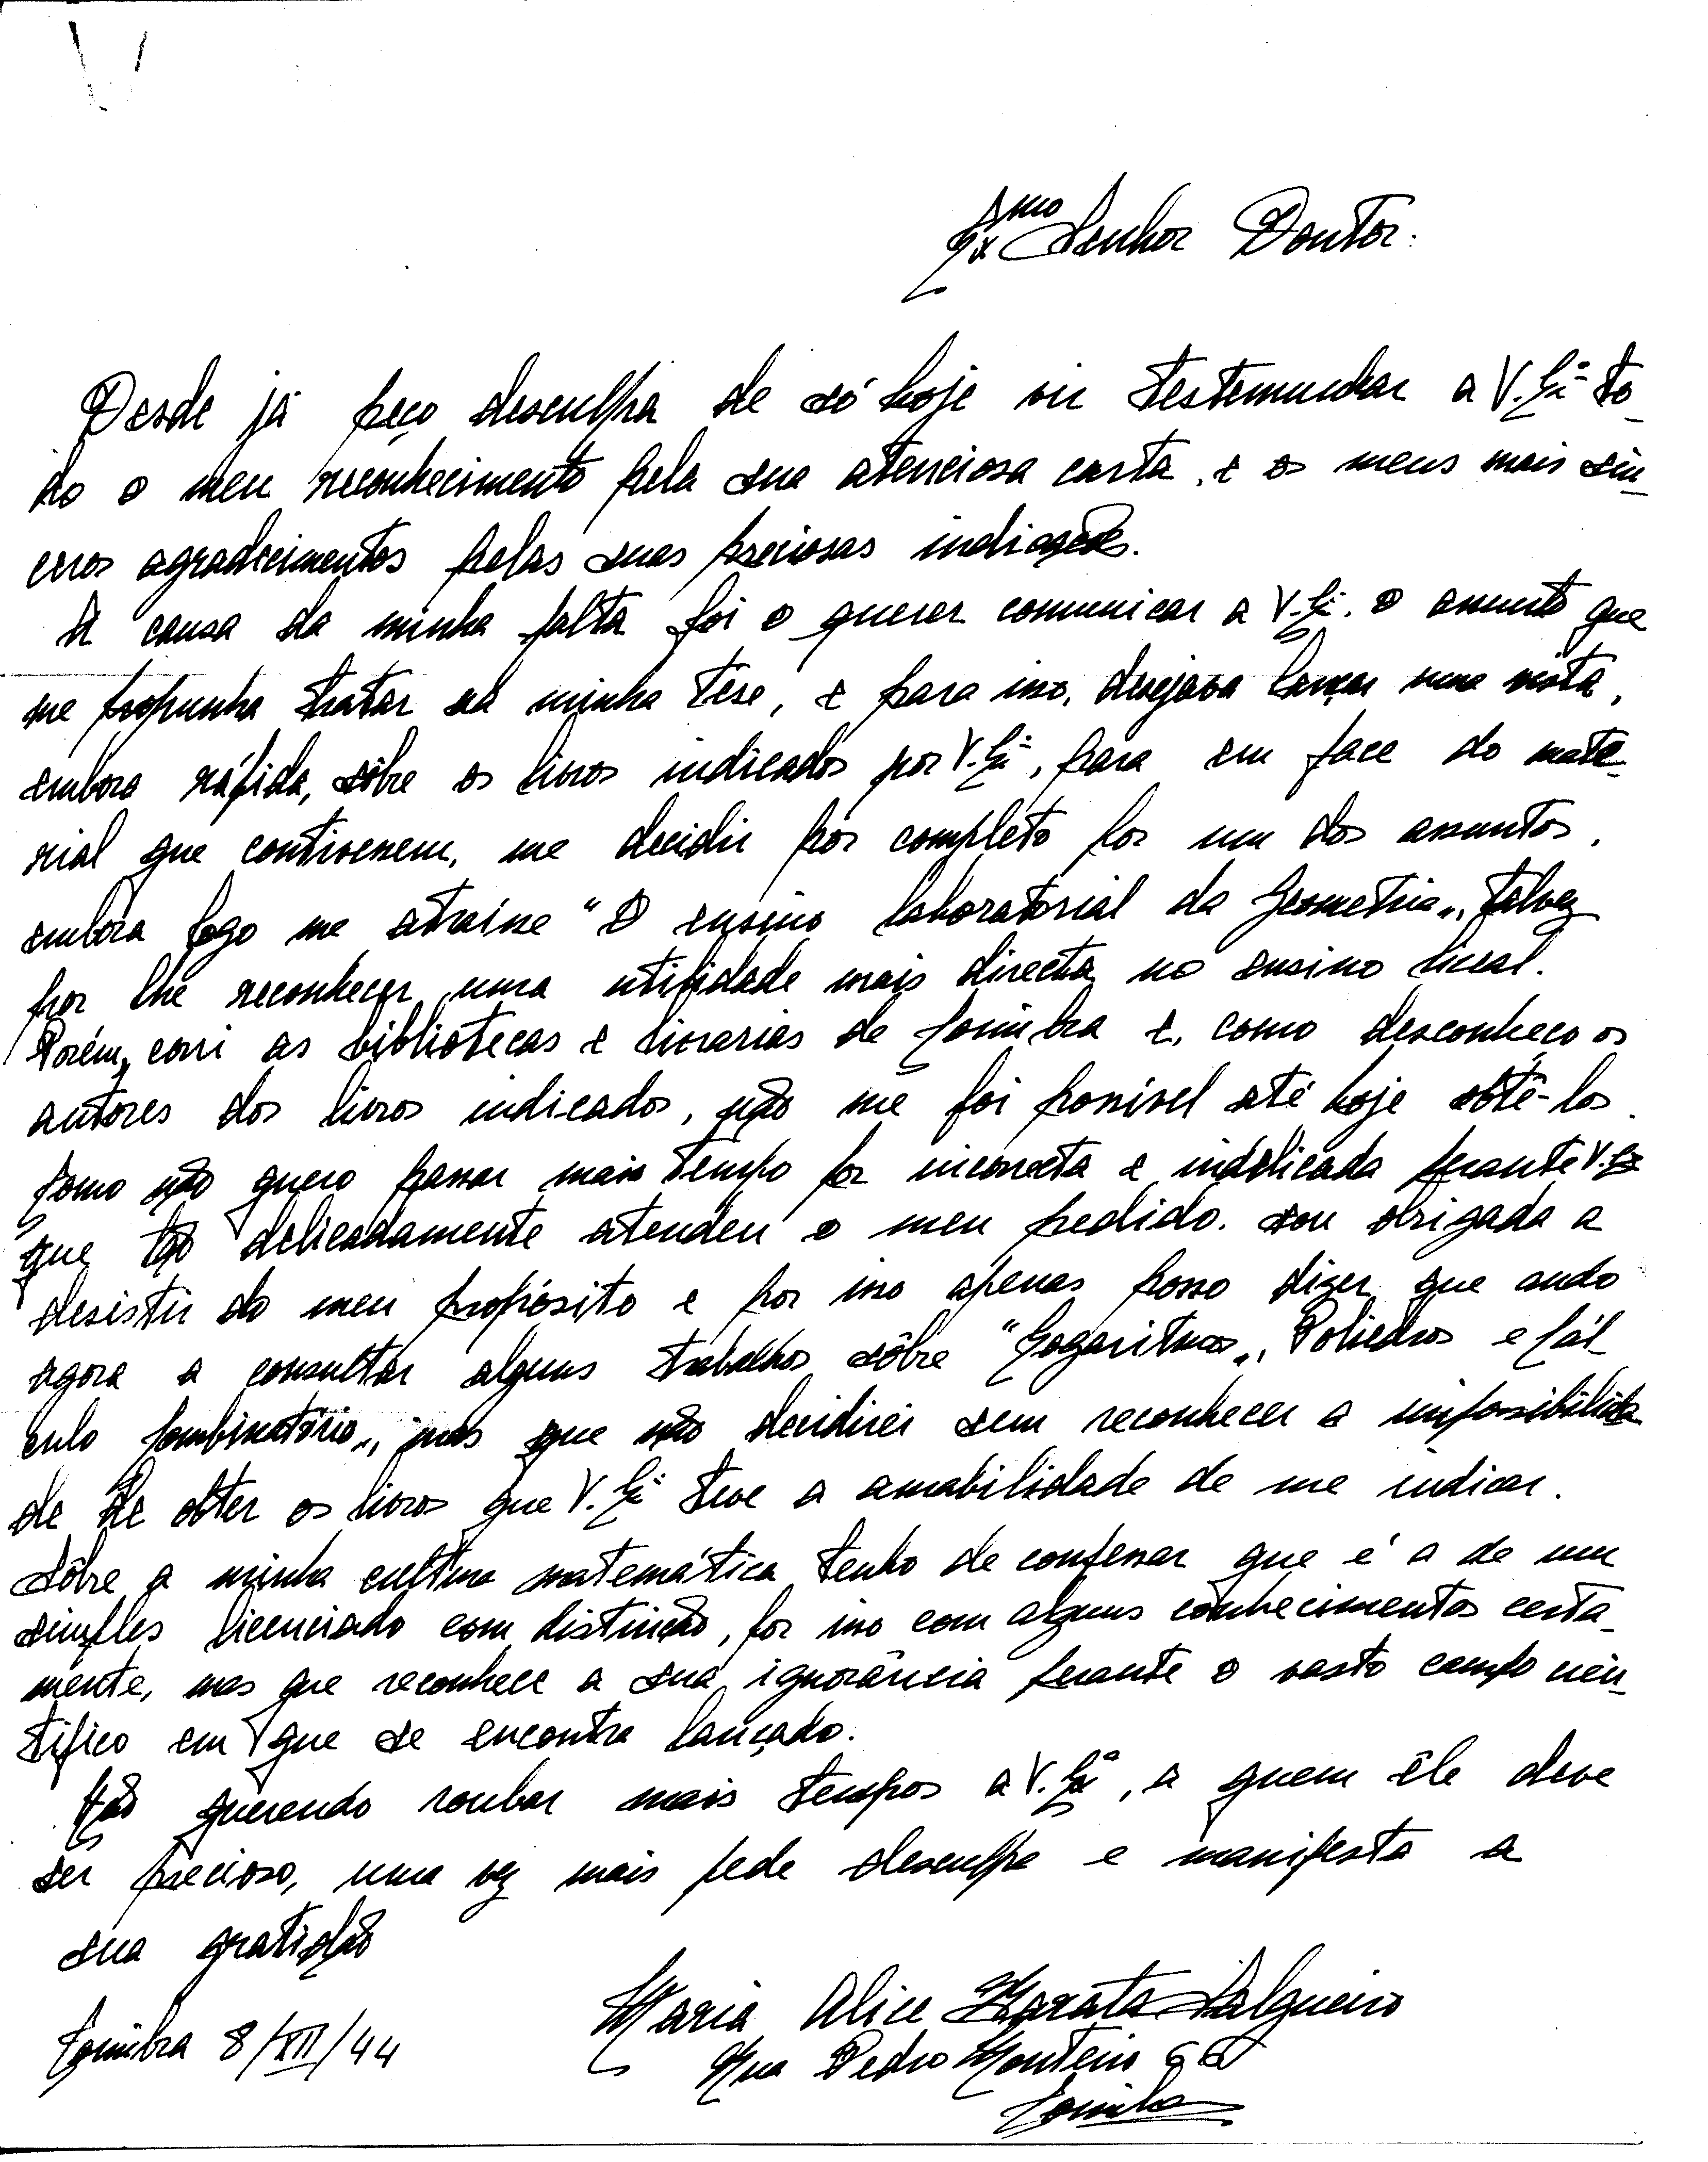 Exmo Senhor Doutor:
Desde já peço desculpa de só hoje vir testemunhar a V. Exª to-
do o meu reconhecimento pela sua atenciosa carta, e os meus mais sin-
ceros agradecimentos pelas suas preciosas indicações.
A causa da minha falta foi o querer comunicar a V. Ex. o assunto que
me propunha tratar na minha tese, e para isso, desejava lançar uma vista,
embora rápida, sôbre os livros indicados por V. Exª, para em face do mate-
rial que contivessem, me decidir por completo por um dos assuntos,
embora logo me atraisse "O ensino laboratorial da Geometria", talvez
por lhe reconhecer uma utilidade mais directa no ensino liceal.
Porém, corri as bibliotecas e livrarias de Coimbra e, como desconheço os
autores dos livros indicados, não me foi possível até hoje obtê-los.
Como não quero passar mais tempo por incorrecta e indelicada perante V. Ex
que tão delicadamente atendeu o meu pedido, sou obrigada a
desistir do meu propósito e por isso apenas posso dizer que ando
agora a consultar alguns trabalhos sôbre "Logaritmos", Poliedros e Cál
culo Combinatório", mas que não decidirei sem reconhecer a impossibilida
de de obter os livros que V. Exª teve a amabilidade de me indicar.
Sôbre a minha cultura matemática tenho de confessar que é a de um
simples licenciado com distinção, por isso com alguns conhecimentos certa-
mente, mas que reconhece a sua ignorância perante o vasto campo cien-
tífico em que se encontra lançado.
Não querendo roubar mais tempos a V. Exª, a quem êle deve
ser precioso, uma vez mais pede desculpa e manifesta a
sua gratidão
Maria Alice Salgueiro
Coimbra 8/XII/44
Rua Pedro Monteiro
Coimbra